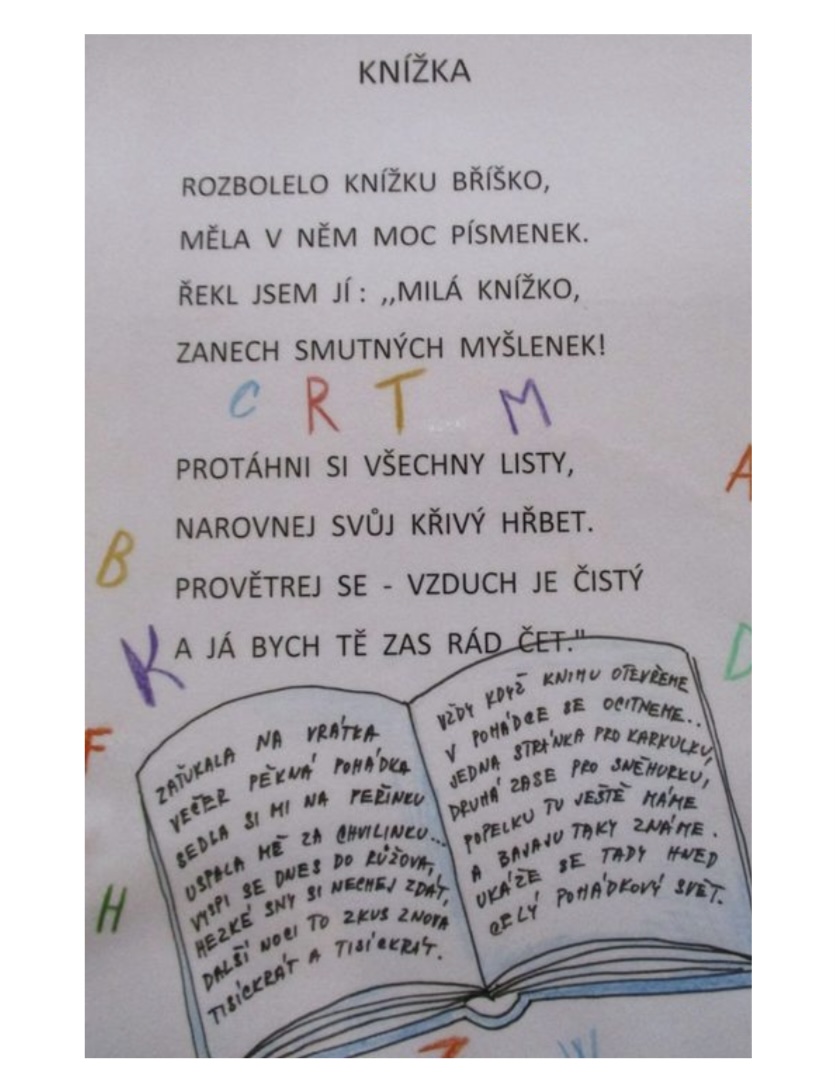 KNÍŽKA
ROZBOLELO KNÍŽKU BŘÍŠKO,
MĚLA V NĚM MOC PÍSMENEK.
ŘEKL JSEM JÍ : ,,MILÁ KNÍŽKO,
ZANECH SMUTNÝCH MYŠLENEK!
C R T M
PROTÁHNI SI VŠECHNY LISTY,
A
NAROVNEJ SVŮJ KŘIVÝ HŘBET.
B
PROVĚTREJ SE - VZDUCH JE ČISTÝ
K
A JÁ BYCH TĚ ZAS RÁD ČET."
D
F
H
ZAŤUKALA NA VRÁTKA
VEČER PĚKNÁ POHÁDKA
SEDLA SI MI NA PEŘINKU
USPALA MĚ ZA CHVILINKU...
VYSPI SE DNES DO RŮŽOVA,
HEZKÉ SNY SI NECHEJ ZDÁT,
DALŠÍ NOCI TO ZKUS ZNOVA
TISÍCKRÁT A TISÍCKRÁT.
VŽDY KDYŽ KNIHU OTEVŘEME
V POHÁDCE SE OCITNEME..
JEDNA STRÁNKA PRO KARKULKU,
DRUHÁ ZASE PRO SNĚHURKU,
POPELKU TU JEŠTĚ MÁME
A BAJAJU TAKY ZNÁME.
UKÁŽE SE TADY HNED
CELÝ POHÁDKOVÝ SVĚT.
W